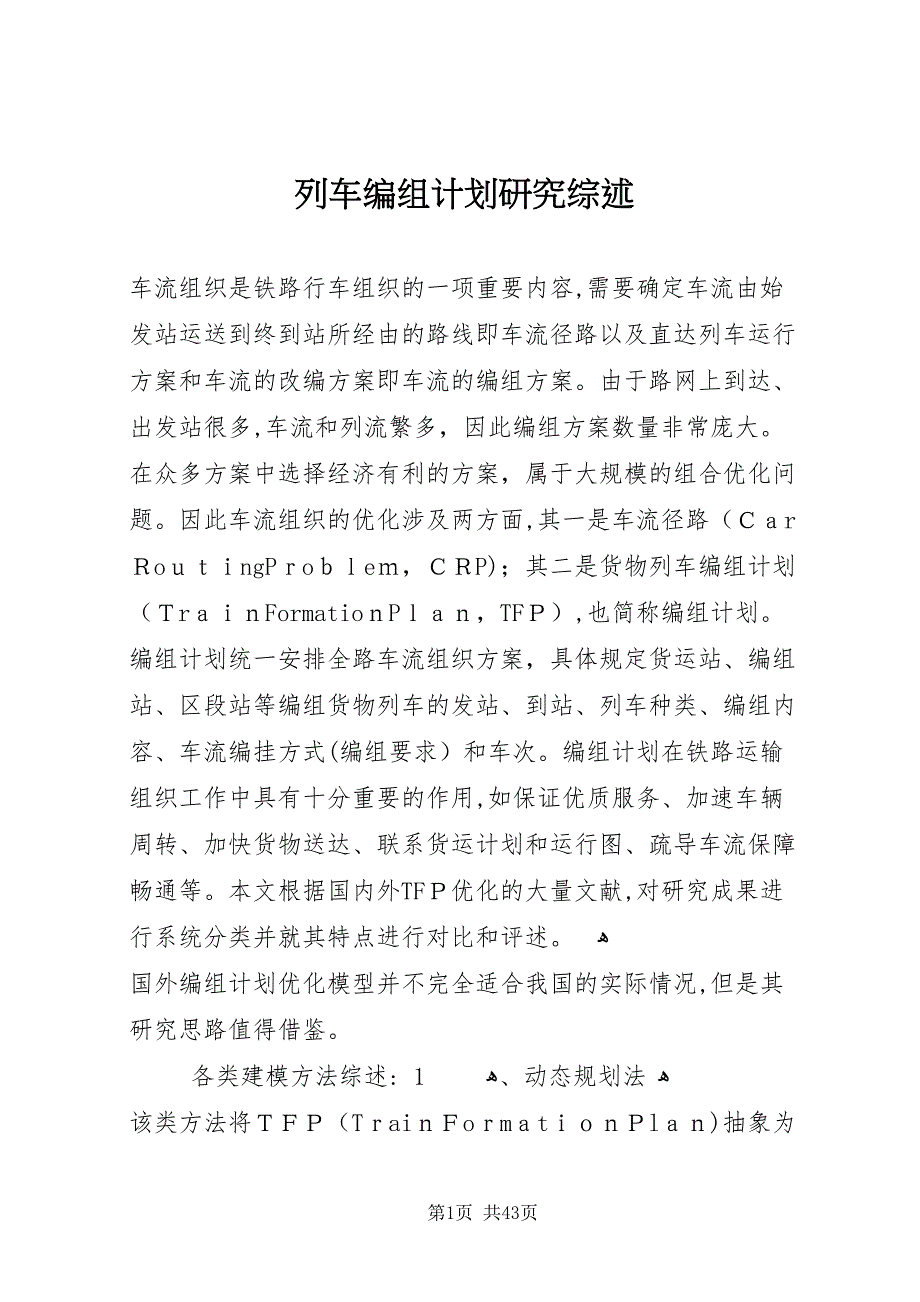 列车编组计划研究综述
车流组织是铁路行车组织的一项重要内容,需要确定车流由始
发站运送到终到站所经由的路线即车流径路以及直达列车运行
方案和车流的改编方案即车流的编组方案。由于路网上到达、
出发站很多,车流和列流繁多，因此编组方案数量非常庞大。
在众多方案中选择经济有利的方案，属于大规模的组合优化问
题。因此车流组织的优化涉及两方面,其一是车流径路（Ｃar
ＲoutingProblem，ＣＲP)；其二是货物列车编组计划
（ＴrainFormationＰlan，TFＰ）,也简称编组计划。
编组计划统一安排全路车流组织方案，具体规定货运站、编组
站、区段站等编组货物列车的发站、到站、列车种类、编组内
容、车流编挂方式(编组要求）和车次。编组计划在铁路运输
组织工作中具有十分重要的作用,如保证优质服务、加速车辆
周转、加快货物送达、联系货运计划和运行图、疏导车流保障
畅通等。本文根据国内外TFＰ优化的大量文献,对研究成果进
行系统分类并就其特点进行对比和评述。 ﻫ
国外编组计划优化模型并不完全适合我国的实际情况,但是其
研究思路值得借鉴。
各类建模方法综述: 1 ﻫ、动态规划法 ﻫ
该类方法将ＴＦＰ（TrainＦormationＰlan)抽象为
第1页 共43页